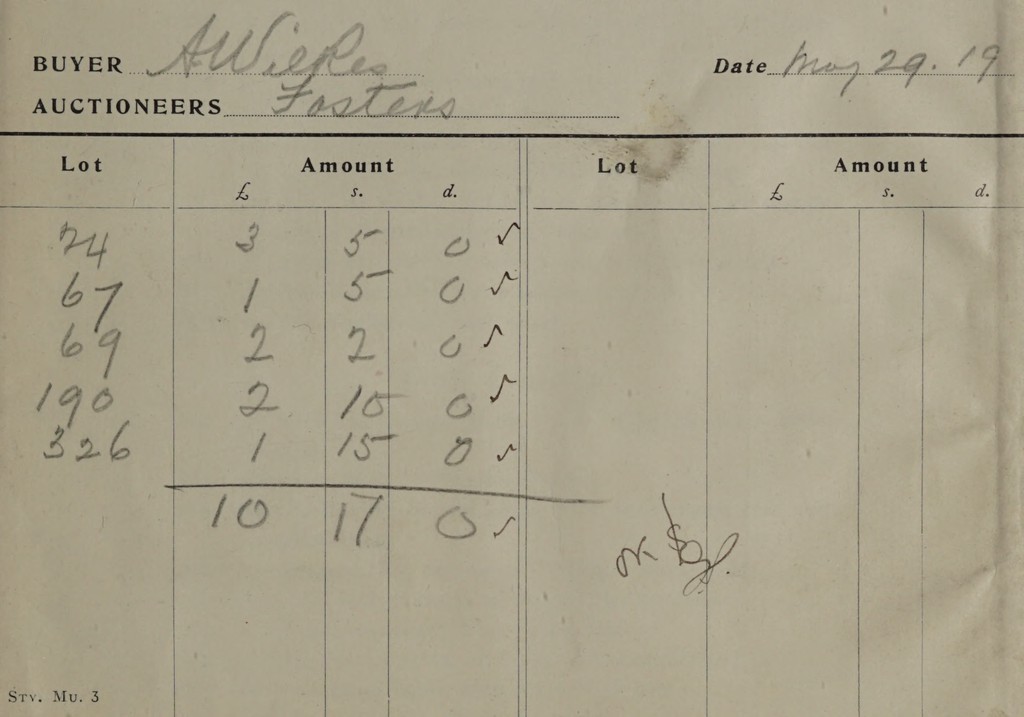 BUYER A Wilkes Date May 29. 19
AUCTIONEERS Fosters
Lot Amount Lot Amount
£ s. d. £ s. d.
24 3 5 0 ✓
67 1 5 0 ✓
69 2 2 0 ✓
190 2 10 0 ✓
326 1 15 0 ✓
10 17 0 ✓
OK
Stv. Mu. 3